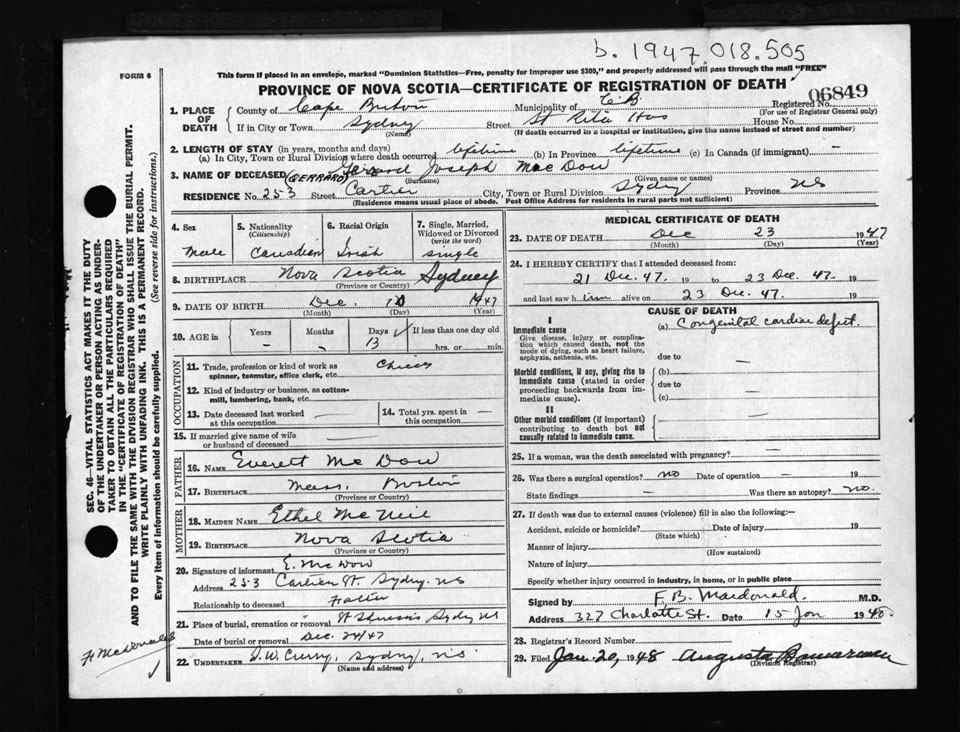 b. 1947.018.505
FORM 6
This form if placed in an envelope, marked "Dominion Statistics—Free, penalty for improper use $300," and properly addressed will pass through the mail "FREE"
PROVINCE OF NOVA SCOTIA—CERTIFICATE OF REGISTRATION OF DEATH
06849
1. PLACE OF DEATH County of Cape Breton Municipality of C.B. Registered No.
(For use of Registrar General only)
If in City or Town Sydney Street St Rita Hos House No.
(Name) (If death occurred in a hospital or institution, give the name instead of street and number)
2. LENGTH OF STAY (in years, months and days)
(a) In City, Town or Rural Division where death occurred lifetime (b) In Province lifetime (c) In Canada (if immigrant) —
3. NAME OF DECEASED (GERRARD) Joseph Mac Dow
(Surname) (Given name or names)
RESIDENCE No. 253 Street Cartier City, Town or Rural Division Sydney Province NS
(Residence means usual place of abode. Post Office Address for residents in rural parts not sufficient)
4. Sex 5. Nationality (Citizenship) 6. Racial Origin 7. Single, Married, Widowed or Divorced (write the word)
Male Canadian Irish single
8. BIRTHPLACE Nova Scotia Sydney
(Province or Country)
9. DATE OF BIRTH Dec. 10 1947
(Month) (Day) (Year)
10. AGE in Years Months Days If less than one day old
— 13 hrs. or min.
OCCUPATION
11. Trade, profession or kind of work as spinner, teamster, office clerk, etc.
12. Kind of industry or business, as cotton-mill, lumbering, bank, etc.
13. Date deceased last worked at this occupation
14. Total yrs. spent in this occupation
15. If married give name of wife or husband of deceased
FATHER
16. NAME Everett Mc Dow
17. BIRTHPLACE Mass. Boston
(Province or Country)
MOTHER
18. MAIDEN NAME Ethel Mc Neil
19. BIRTHPLACE Nova Scotia
(Province or Country)
20. Signature of informant E. McDow
Address 253 Cartier St. Sydney. NS
Relationship to deceased Father
21. Place of burial, cremation or removal Sydney NS
Date of burial or removal Dec. 24/47
22. UNDERTAKER D.W. Curry, Sydney, N.S.
(Name and address)
MEDICAL CERTIFICATE OF DEATH
23. DATE OF DEATH Dec 23 1947
(Month) (Day) (Year)
24. I HEREBY CERTIFY that I attended deceased from:
21 Dec. 47. 19 to 23 Dec. 47. 19
and last saw him alive on 23 Dec. 47. 19
CAUSE OF DEATH
I
Immediate cause (a) Congenital cardiac defect.
Give disease, injury or complication which caused death, not the mode of dying, such as heart failure, asphyxia, asthenia, etc.
due to —
Morbid conditions, if any, giving rise to immediate cause (stated in order proceeding backwards from immediate cause).
(b) —
due to
(c) —
II
Other morbid conditions (if important) contributing to death but not causally related to immediate cause. —
25. If a woman, was the death associated with pregnancy? —
26. Was there a surgical operation? no Date of operation — 19
State findings — Was there an autopsy? no.
27. If death was due to external causes (violence) fill in also the following:—
Accident, suicide or homicide? Date of injury 19
(State which)
Manner of injury
(How sustained)
Nature of injury
Specify whether injury occurred in industry, in home, or in public place
Signed by F. B. Macdonald. M.D.
Address 327 Charlotte St. Date 15 Jan 1948
28. Registrar's Record Number
29. Filed Jan. 20, 1948 Augusta
(Division Registrar)
SEC. 46—VITAL STATISTICS ACT MAKES IT THE DUTY
OF THE UNDERTAKER OR PERSON ACTING AS UNDER-
TAKER TO OBTAIN ALL THE PARTICULARS REQUIRED
IN THE "CERTIFICATE OF REGISTRATION OF DEATH"
AND TO FILE THE SAME WITH THE DIVISION REGISTRAR WHO SHALL ISSUE THE BURIAL PERMIT.
WRITE PLAINLY WITH UNFADING INK. THIS IS A PERMANENT RECORD.
Every item of information should be carefully supplied. (See reverse side for instructions.)